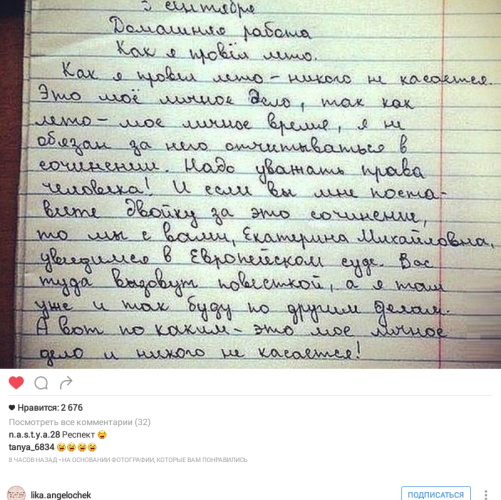 5 сентября
Домашняя работа
Как я провёл лето.
Как я провёл лето - никого не касается.
Это моё личное дело, так как
лето - мое личное время, я не
обязан за него отчитываться в
сочинении. Надо уважать права
человека! И если вы мне поста-
вите двойку за это сочинение,
то мы с вами, Екатерина Михайловна,
увидимся в Европейском суде. Вас
туда вызовут повесткой, а я там
уже и так буду по другим делам.
А вот по каким - это мое личное
дело и никого не касается!
Нравится: 2 676
Посмотреть все комментарии (32)
n.a.s.t.y.a.28 Респект 😄
tanya_6834 😂😂😂😂
8 ЧАСОВ НАЗАД • НА ОСНОВАНИИ ФОТОГРАФИИ, КОТОРЫЕ ВАМ ПОНРАВИЛИСЬ
lika.angelochek
ПОДПИСАТЬСЯ